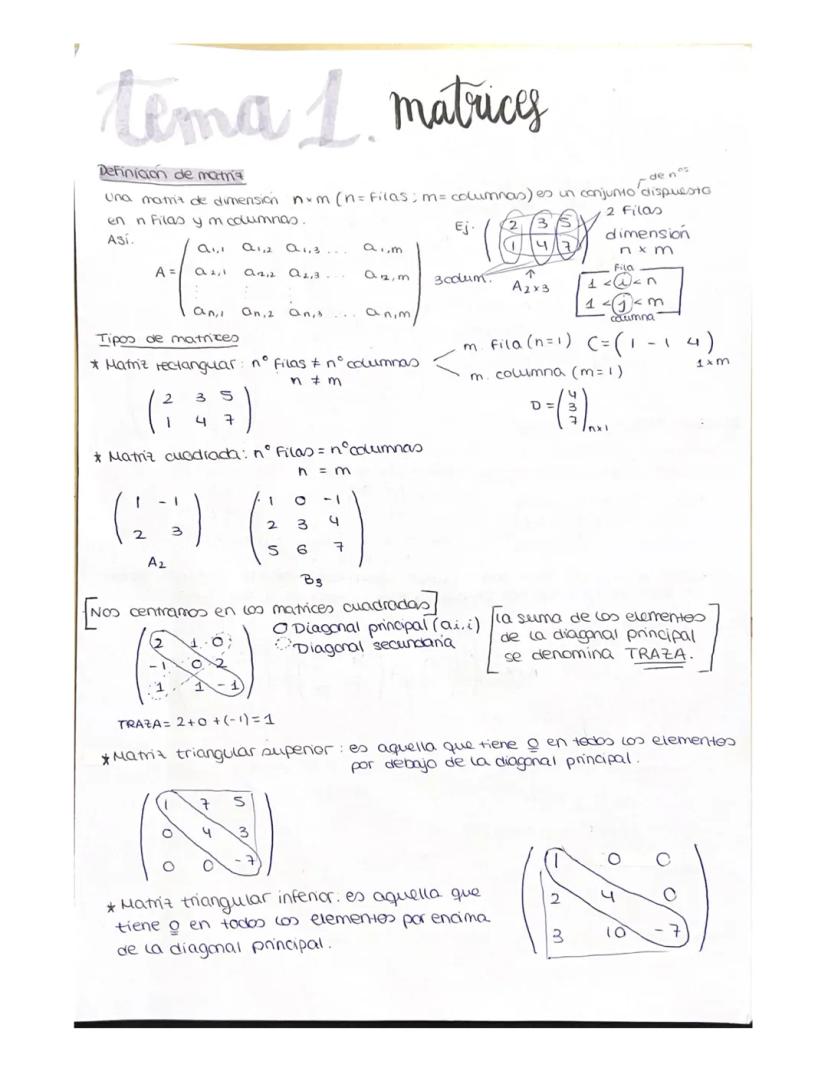 tema 1. matrices
Definición de matriz
Una matriz de dimensión n×m (n= filas; m= columnas) es un conjunto de nºs dispuesto
en n filas y m columnas.
Así.
A = ( a1,1 a1,2 a1,3 ... a1,m
a2,1 a2,2 a2,3 ... a2,m
: : :
an,1 an,2 an,3 ... an,m )
Ej. ( 2 3 5
1 4 7 )
2 filas
dimensión
n × m
3 colum.
A2×3
Fila
1 < i < n
1 < j < m
columna
Tipos de matrices
* Matriz rectangular: nº filas ≠ nº columnas
n ≠ m
( 2 3 5
1 4 7 )
m. fila (n=1) C=(1 -1 4) 1×m
m. columna (m=1)
D = ( 4
3
7 ) n×1
* Matriz cuadrada: nº filas = nº columnas
n = m
( 1 -1
2 3 )
A2
( 1 0 -1
2 3 4
5 6 7 )
B3
[Nos centramos en las matrices cuadradas]
Diagonal principal (ai,i)
Diagonal secundaria
( 2 1 0
-1 0 2
1 1 -1 )
TRAZA = 2+0+(-1)=1
[La suma de los elementos
de la diagonal principal
se denomina TRAZA.]
* Matriz triangular superior: es aquella que tiene 0 en todos los elementos
por debajo de la diagonal principal.
( 1 7 5
0 4 3
0 0 -7 )
* Matriz triangular inferior: es aquella que
tiene 0 en todos los elementos por encima
de la diagonal principal.
( 1 0 0
2 4 0
3 10 -7 )